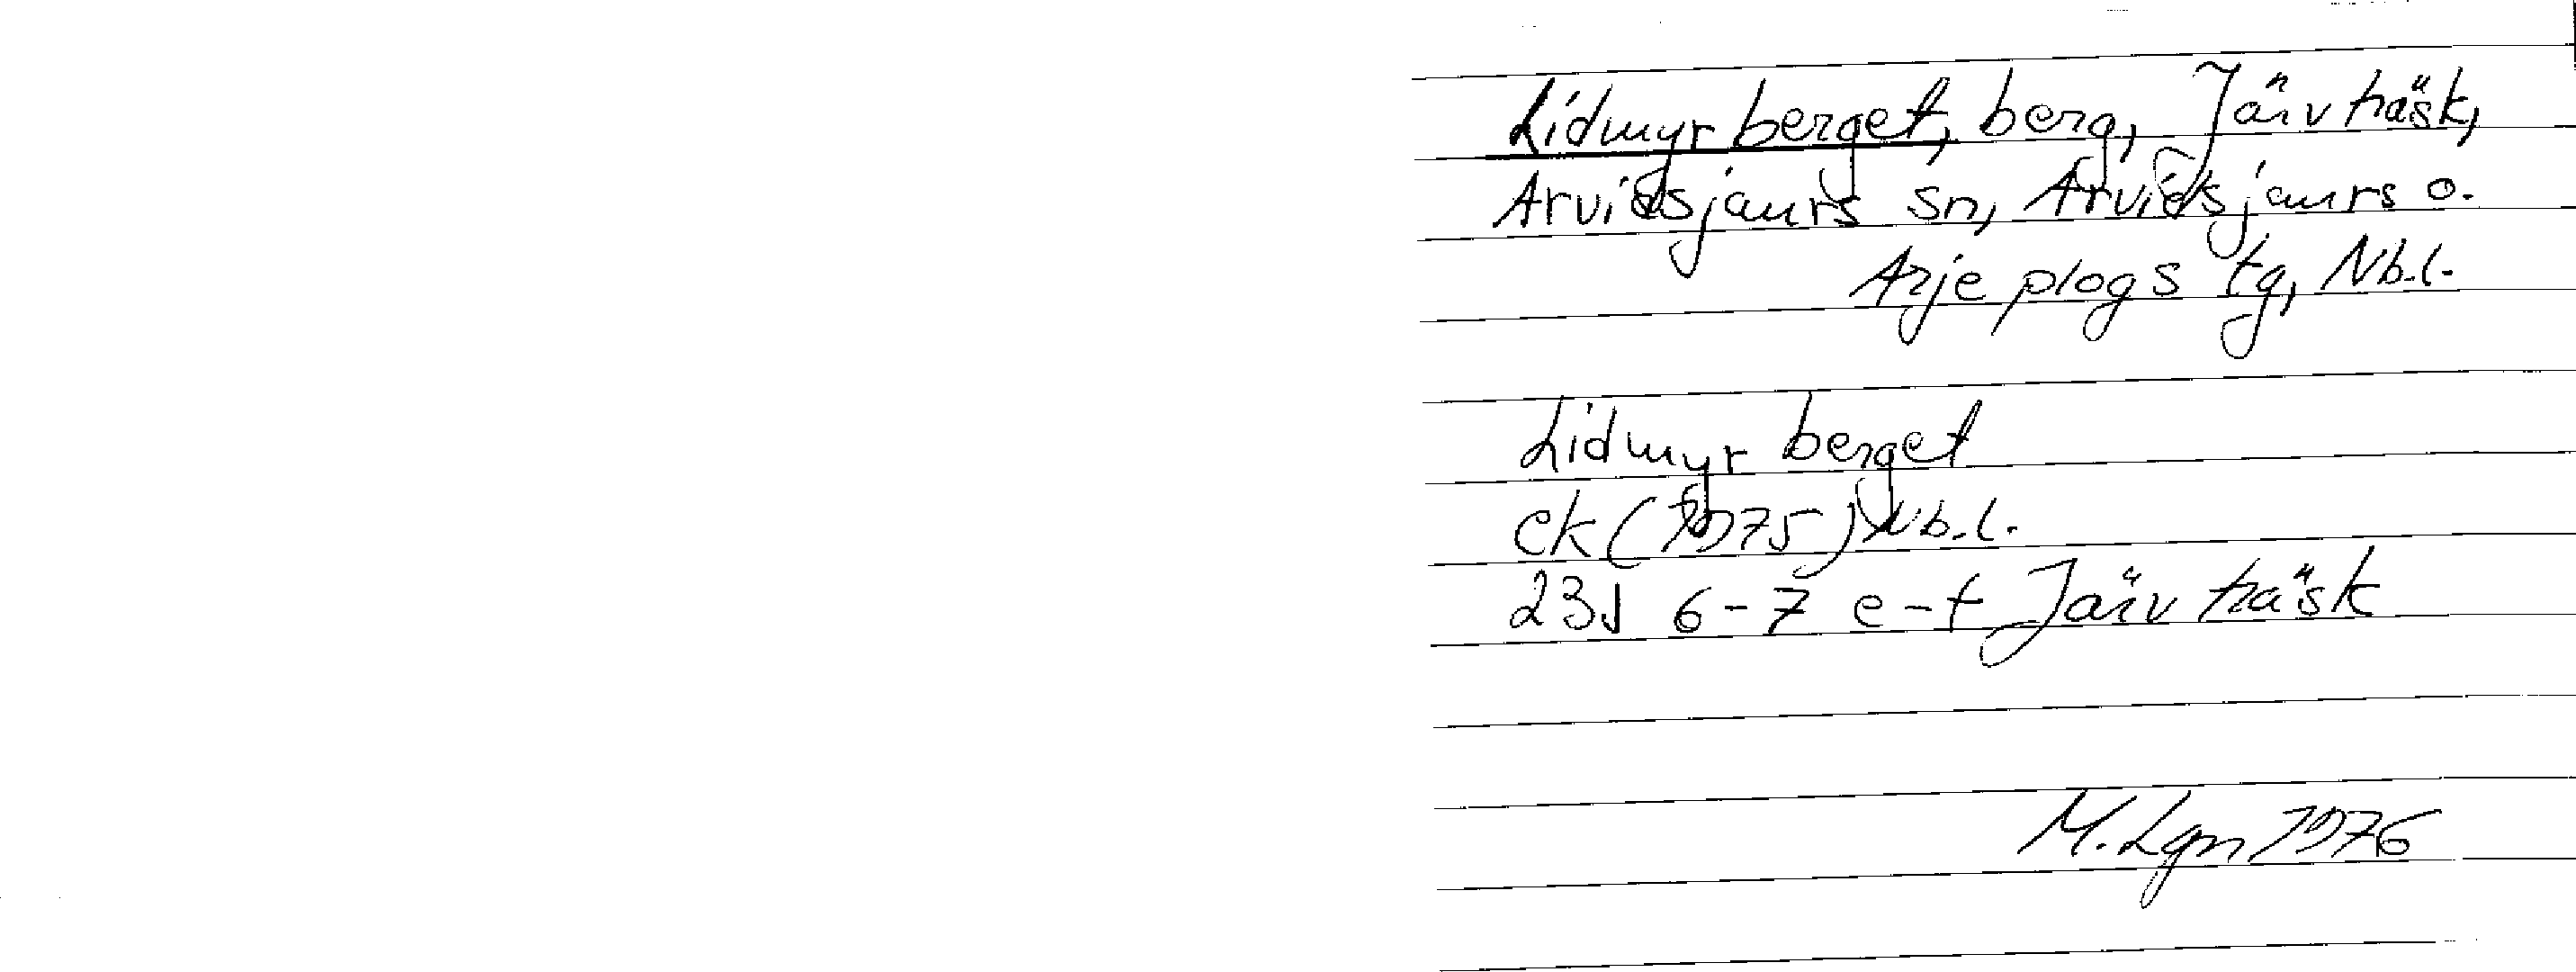 Lidmyrberget, berg, Järvträsk,
Arvidsjaurs sn, Arvidsjaurs o.
Arjeplogs tg, Nb.l.
Lidmyrberget
ek (1975) Nb.l.
23J 6-7 e-f Järvträsk
M. Lgn 1976